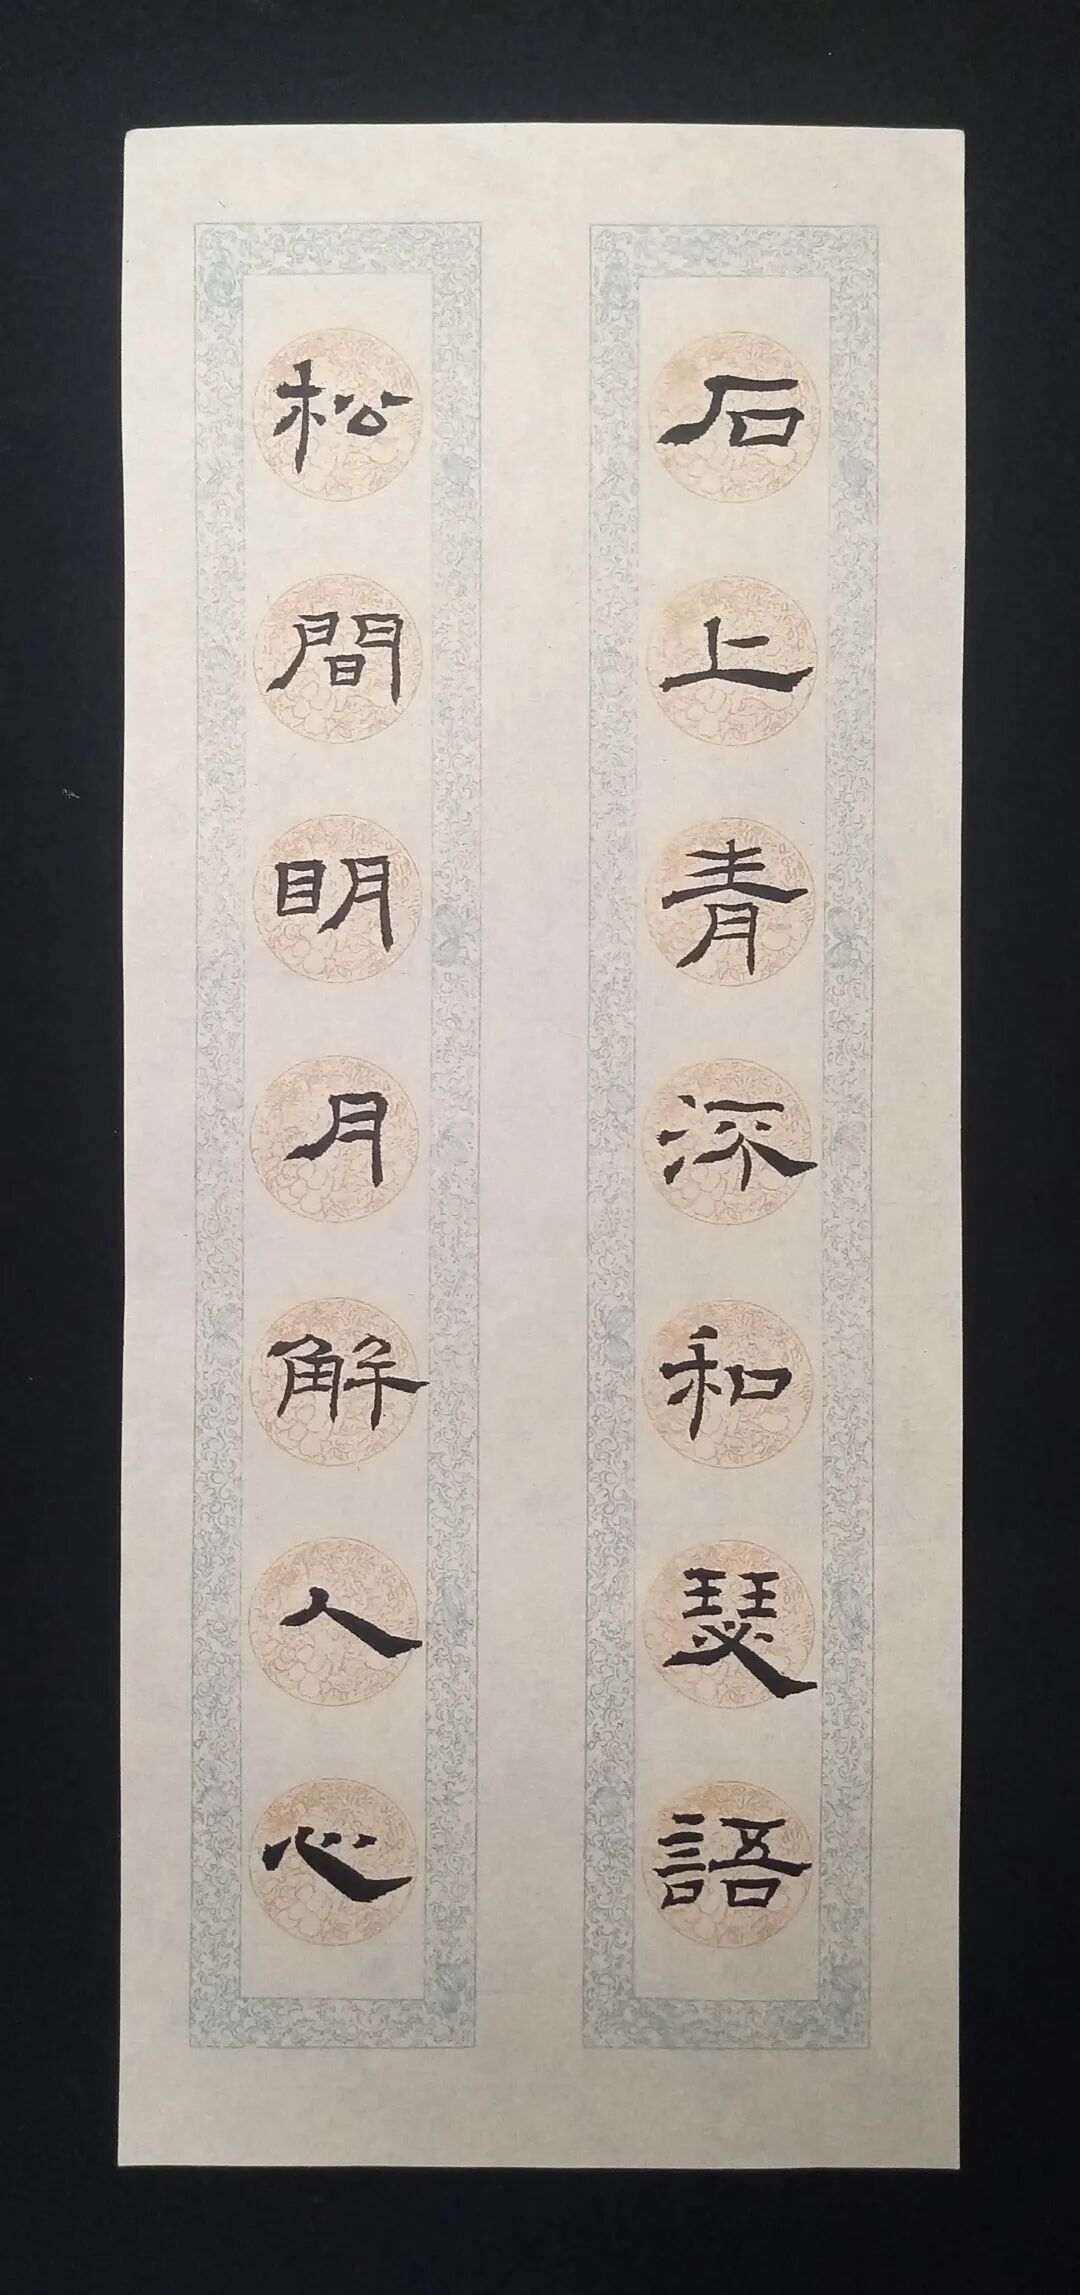 石上青和瑟語
松間明月解人心